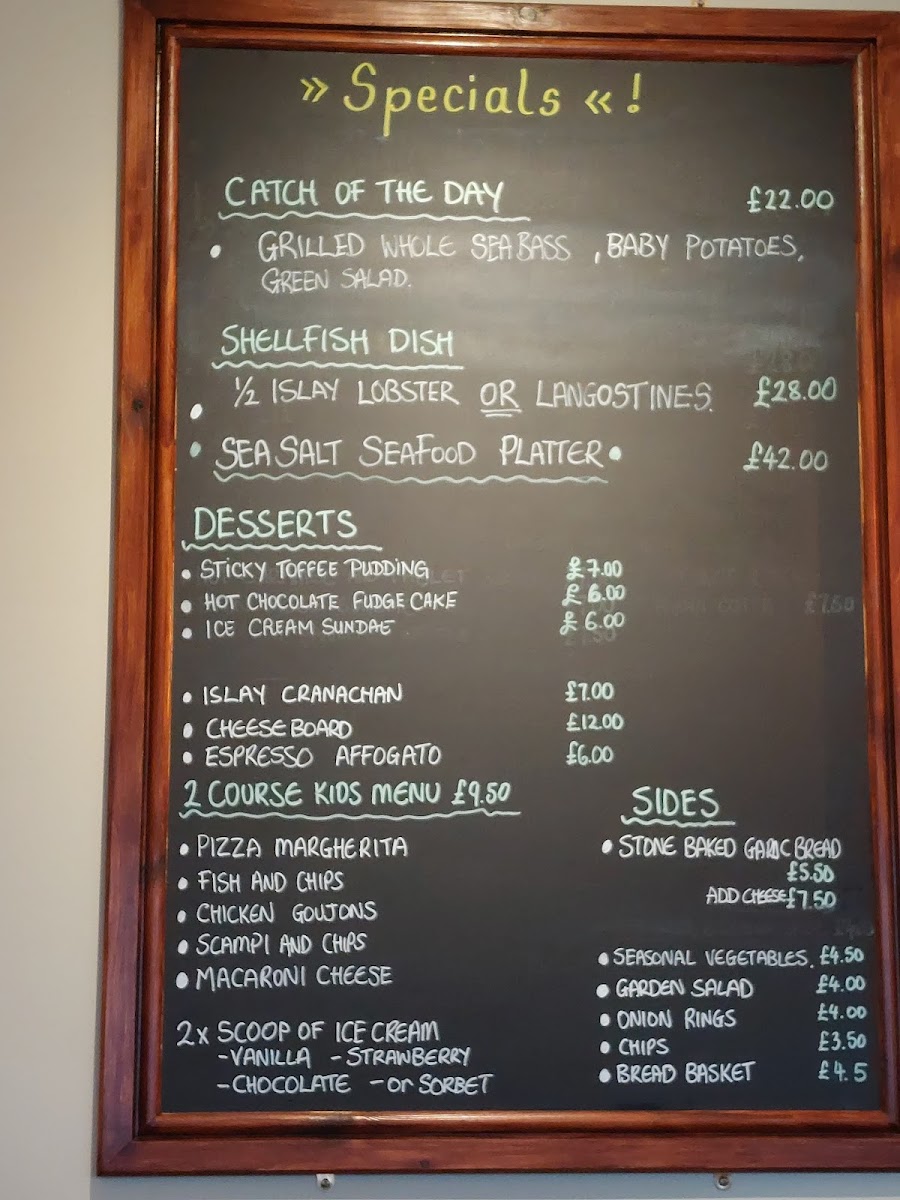 » Specials « !
CATCH OF THE DAY £22.00
• GRILLED WHOLE SEA BASS , BABY POTATOES,
GREEN SALAD.
SHELLFISH DISH
• ½ ISLAY LOBSTER OR LANGOSTINES. £28.00
• SEA SALT SEAFOOD PLATTER • £42.00
DESSERTS
• STICKY TOFFEE PUDDING £7.00
• HOT CHOCOLATE FUDGE CAKE £6.00
• ICE CREAM SUNDAE £6.00
• ISLAY CRANACHAN £7.00
• CHEESE BOARD £12.00
• ESPRESSO AFFOGATO £6.00
2 COURSE KIDS MENU £9.50
• PIZZA MARGHERITA
• FISH AND CHIPS
• CHICKEN GOUJONS
• SCAMPI AND CHIPS
• MACARONI CHEESE
2x SCOOP OF ICE CREAM
-VANILLA -STRAWBERRY
-CHOCOLATE -or SORBET
SIDES
• STONE BAKED GARLIC BREAD
£5.50
ADD CHEESE £7.50
• SEASONAL VEGETABLES. £4.50
• GARDEN SALAD £4.00
• ONION RINGS £4.00
• CHIPS £3.50
• BREAD BASKET £4.5